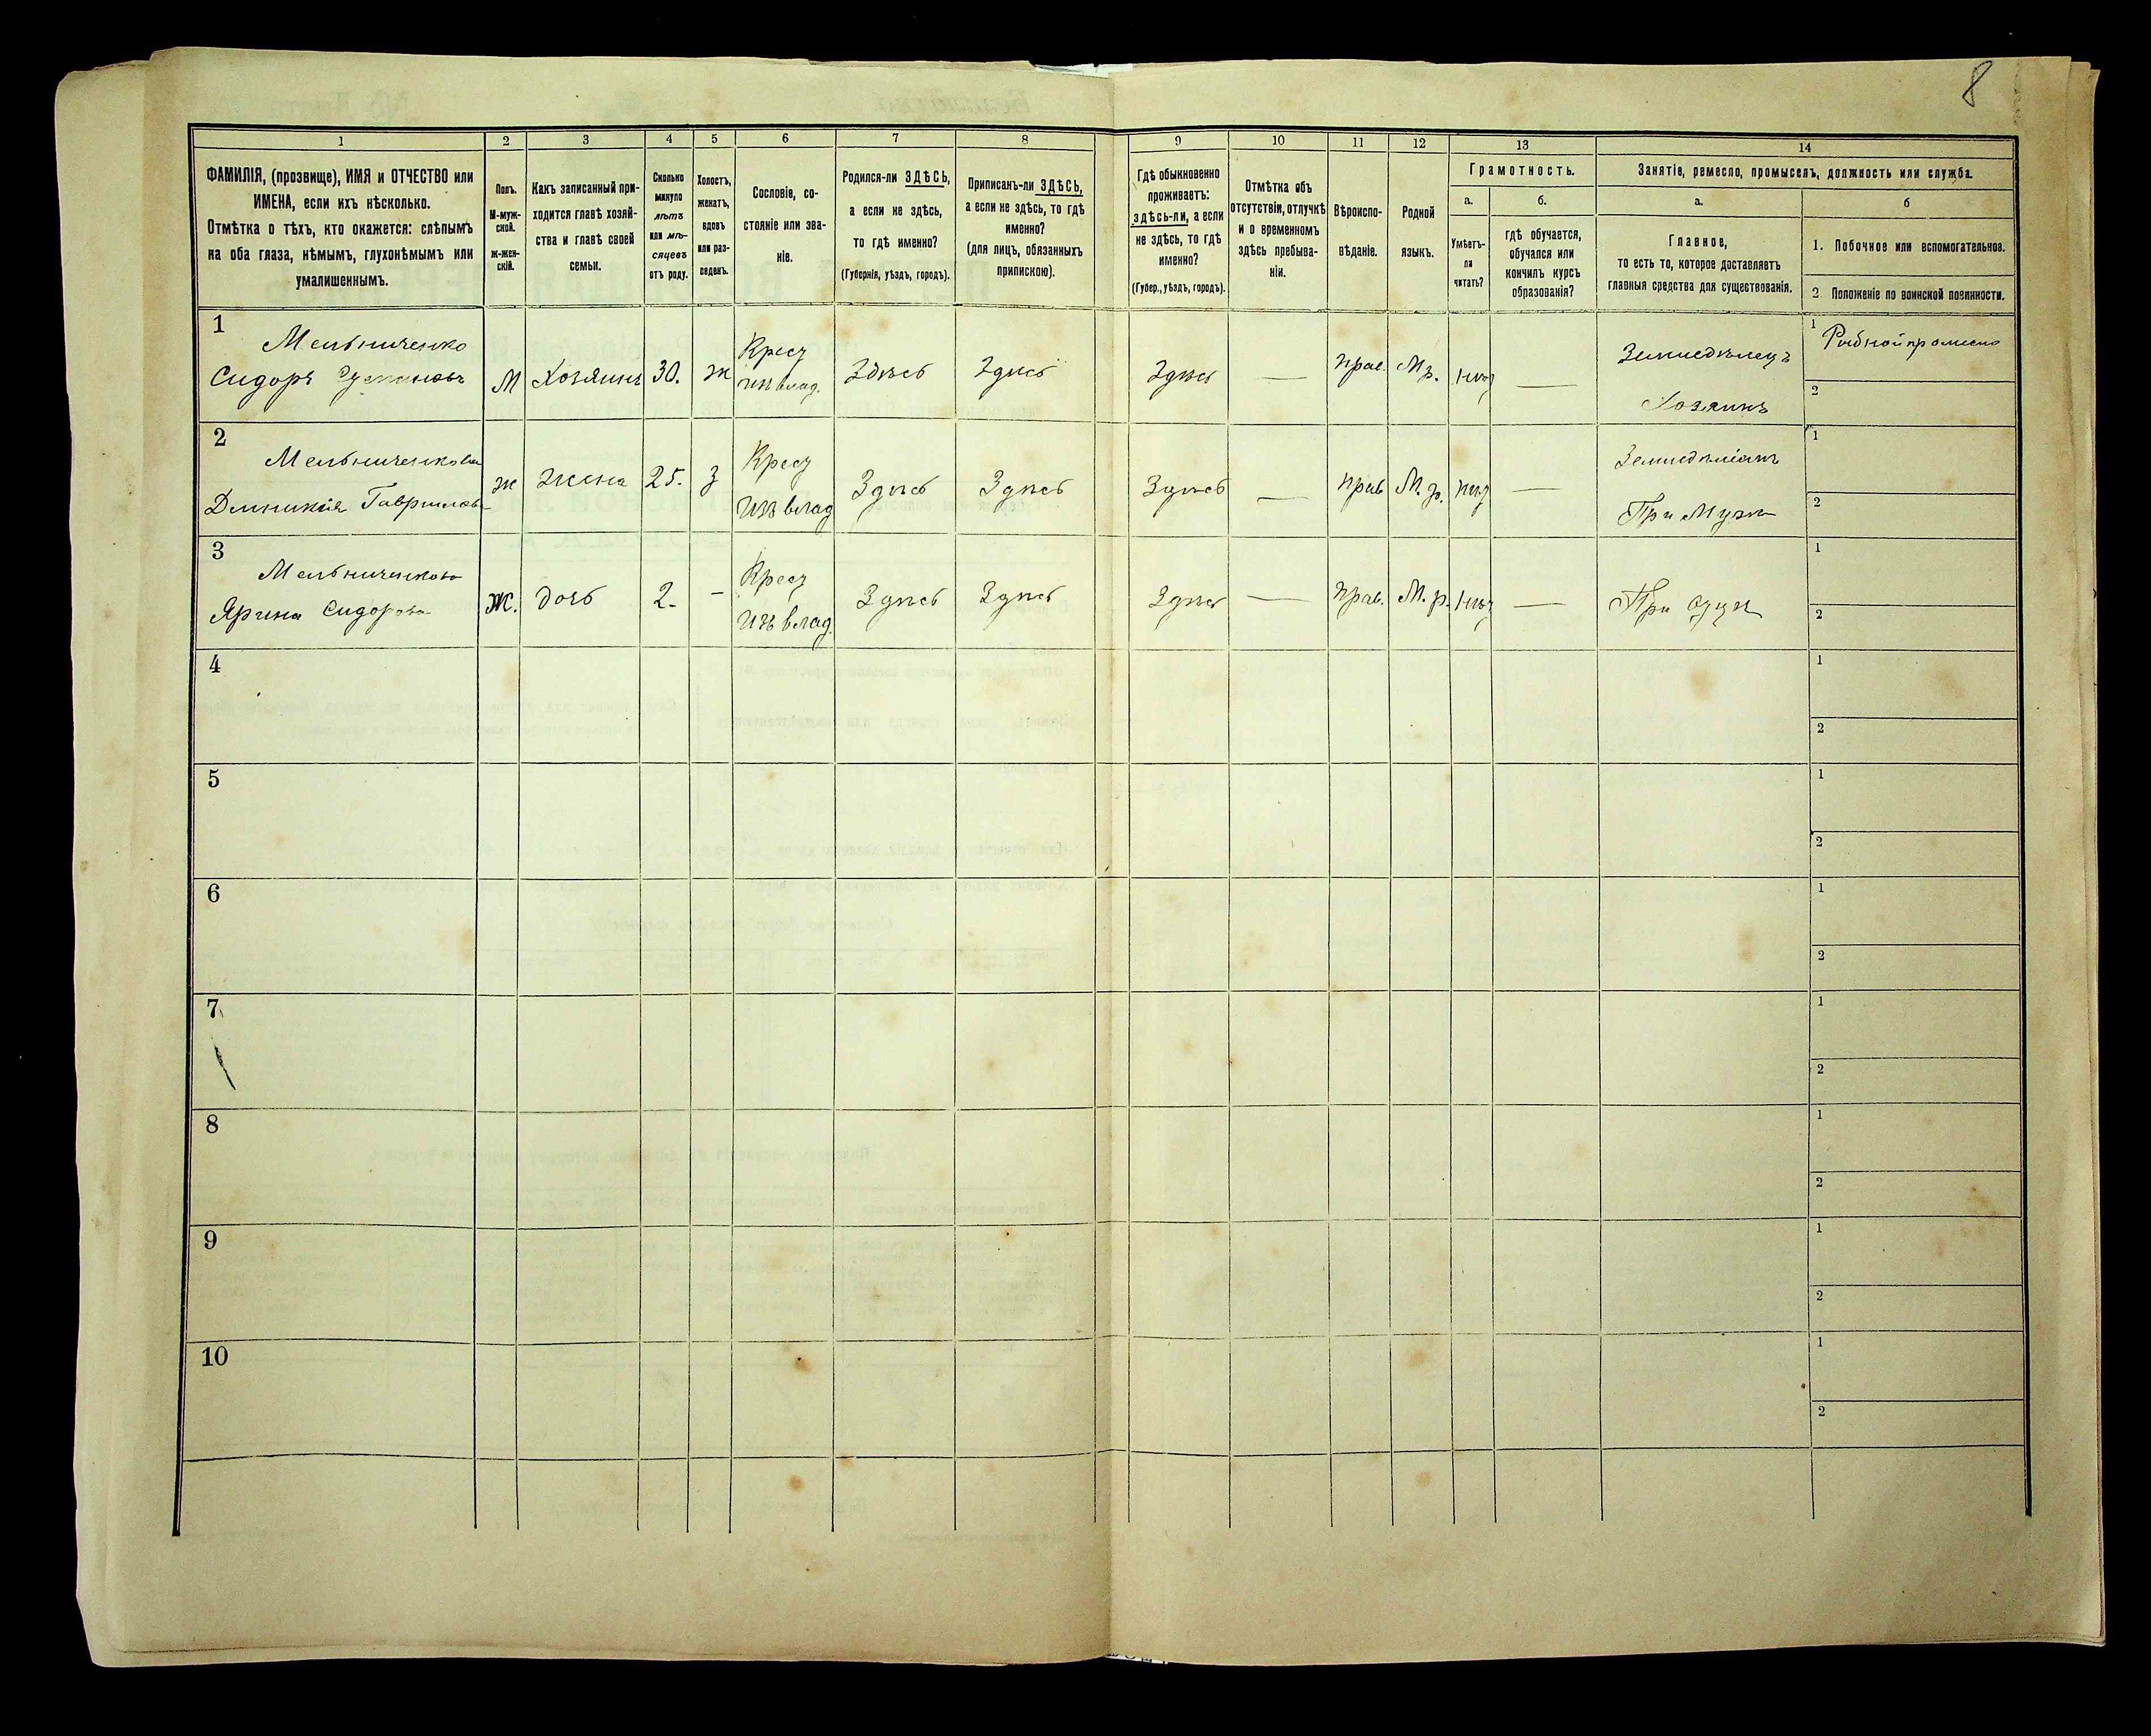 8
1 2 3 4 5 6 7 8 9 10 11 12 13 14
ФАМИЛІЯ, (прозвище), ИМЯ и ОТЧЕСТВО или
ИМЕНА, если ихъ нѣсколько.
Отмѣтка о тѣхъ, кто окажется: слѣпымъ
на оба глаза, нѣмымъ, глухонѣмымъ или
умалишеннымъ.
Полъ.
М-муж-
ской.
ж-жен-
скій.
Какъ записанный при-
ходится главѣ хозяй-
ства и главѣ своей
семьи.
Сколько
минуло
лѣтъ
или мѣ-
сяцевъ
отъ роду.
Холостъ,
женатъ,
вдовъ
или раз-
веденъ.
Сословіе, со-
стояніе или зва-
ніе.
Родился-ли ЗДѢСЬ,
а если не здѣсь,
то гдѣ именно?
(Губернія, уѣздъ, городъ).
Приписанъ-ли ЗДѢСЬ,
а если не здѣсь, то гдѣ
именно?
(для лицъ, обязанныхъ
припискою).
Гдѣ обыкновенно
проживаетъ:
здѣсь-ли, а если
не здѣсь, то гдѣ
именно?
(Губер., уѣздъ, городъ).
Отмѣтка объ
отсутствіи, отлучкѣ
и о временномъ
здѣсь пребыва-
ніи.
Вѣроиспо-
вѣданіе.
Родной
языкъ.
Грамотность.
а.
Умѣетъ-
ли
читать?
б.
гдѣ обучается,
обучался или
кончилъ курсъ
образованія?
Занятіе, ремесло, промыселъ, должность или служба.
а.
Главное,
то есть то, которое доставляетъ
главныя средства для существованія.
б
1. Побочное или вспомогательное.
2. Положеніе по воинской повинности.
1
Мельниченко
Сидоръ
М Хозяинъ 30. ж
Крест
изъ влад.
Здѣсь Здѣсь Здѣсь — прав. М.р. нѣт —
Земледѣлецъ
Хозяинъ
1
2
2
Мельниченкова
Гаврилов
ж жена 25. з
Крест
Изъ влад
Здѣсь Здѣсь Здѣсь — прав М.р. нѣт —
При Мужѣ
1
2
3
Мельниченкова
Ярина Сидорова
Ж. дочь 2. –
Крест
Изъ влад.
Здѣсь Здѣсь Здѣсь — прав. М.р. нѣт —
При отцѣ
1
2
4
1
2
5
1
2
6
1
2
7
1
2
8
1
2
9
1
2
10
1
2